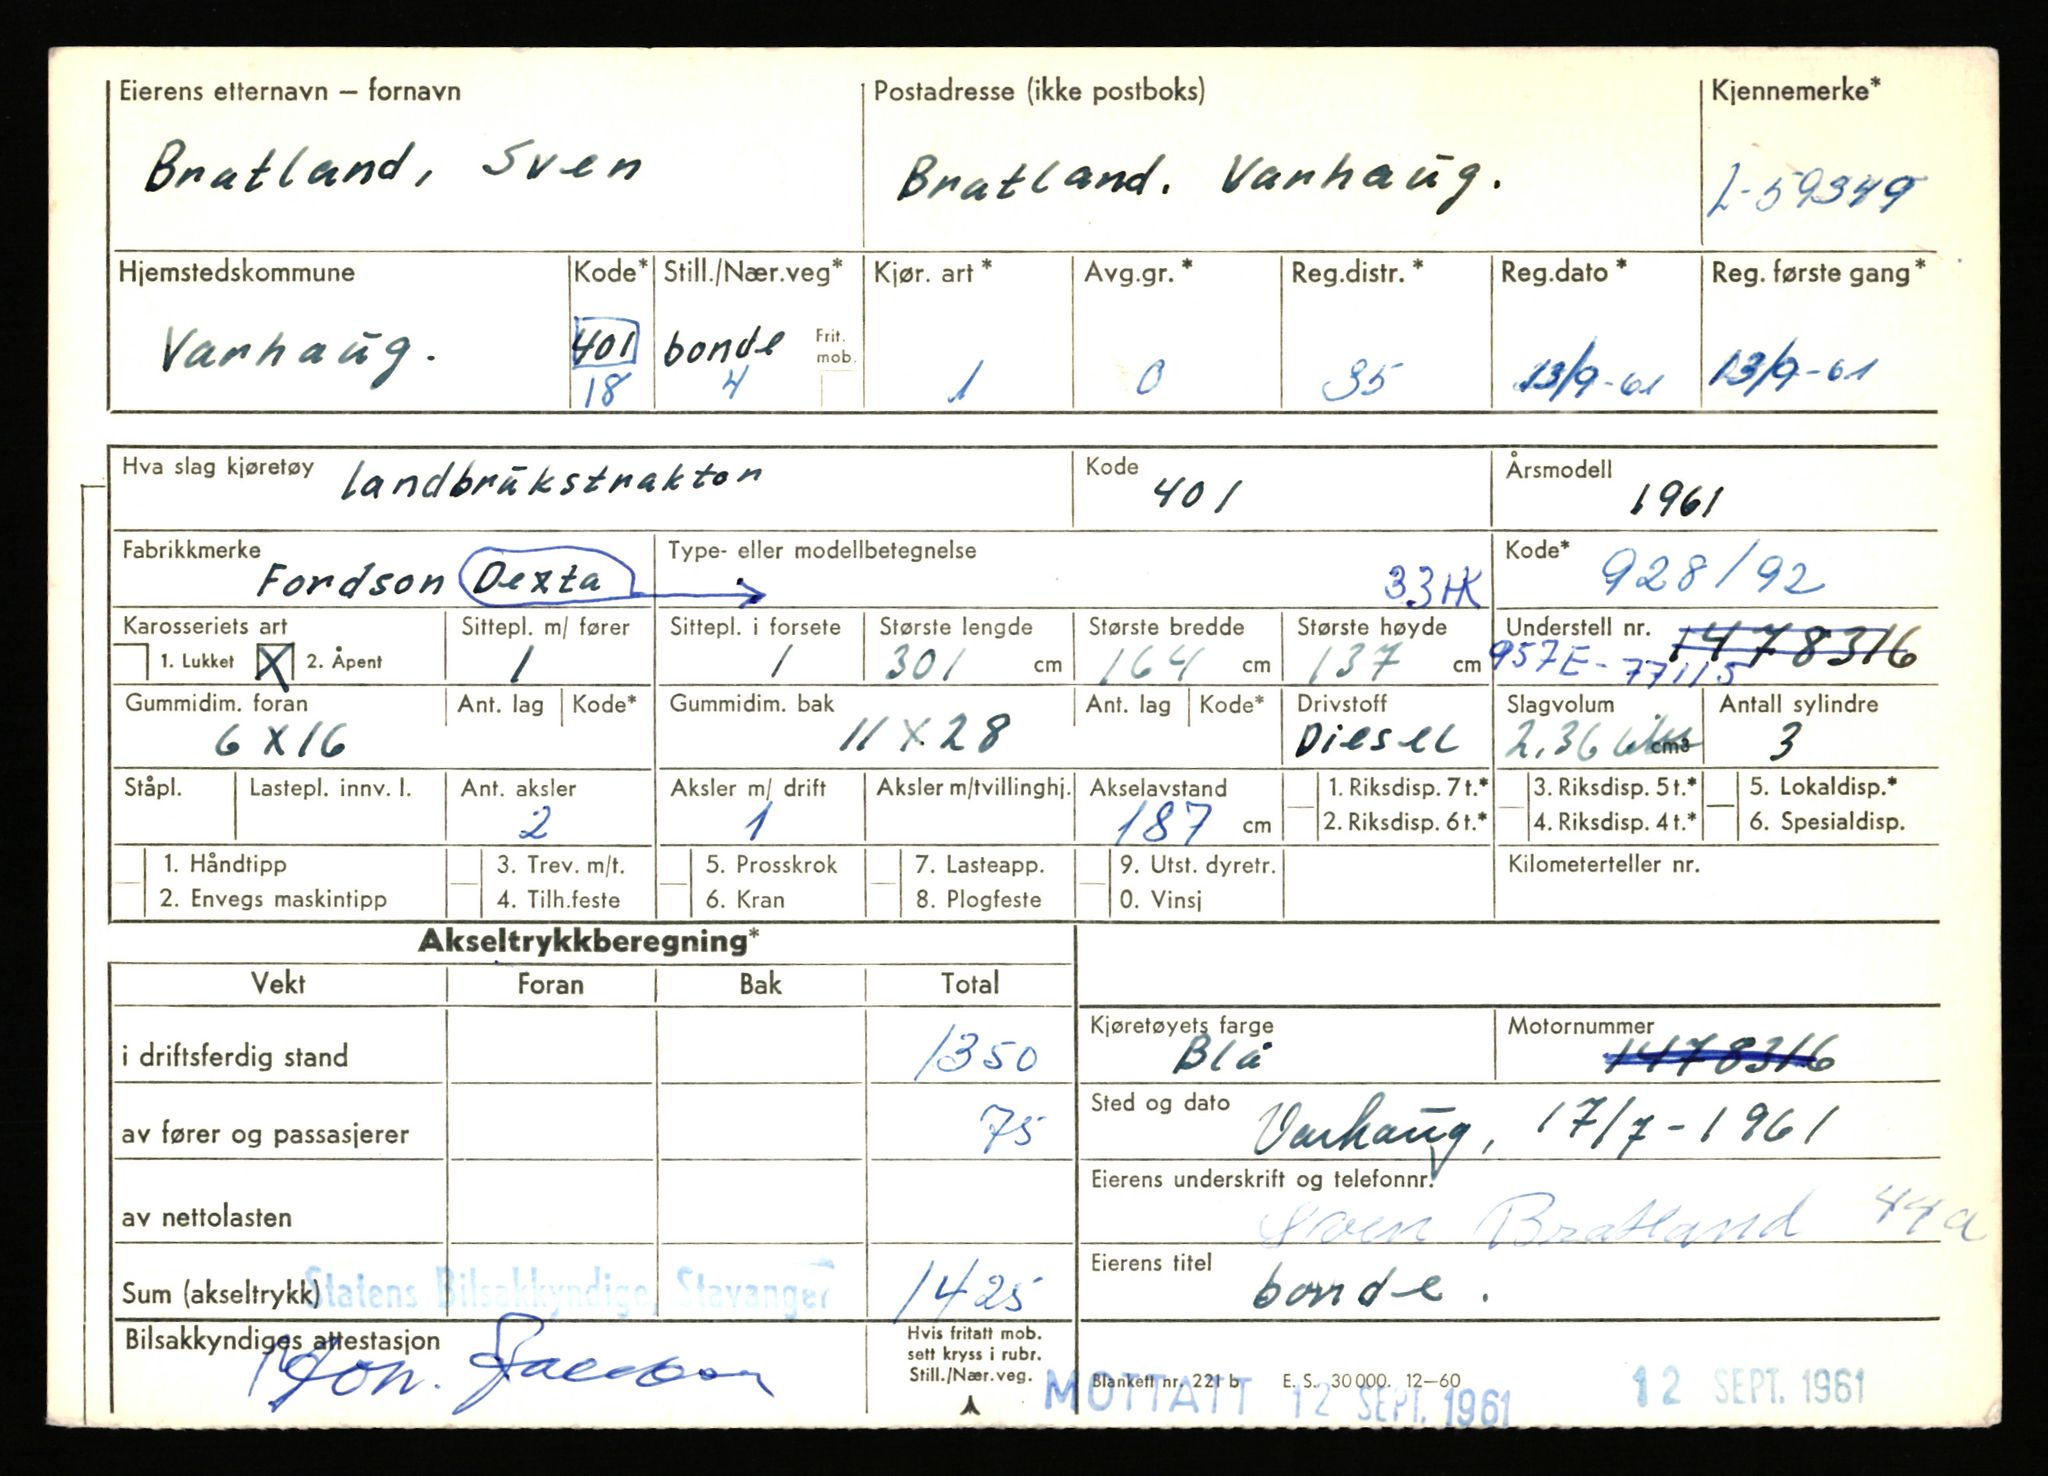 Eierens etternavn – fornavn   Postadresse (ikke postboks)   Kjennemerke*
Bratland, Sven   Bratland. Varhaug.   L-59349
Hjemstedskommune   Kode*   Still./Nær.veg*   Kjør. art*   Avg.gr.*   Reg.distr.*   Reg.dato*   Reg. første gang*
Varhaug.   401   bonde   Frit. mob.
18   4   1   0   35   13/9-61   13/9-61
Hva slag kjøretøy landbrukstraktor   Kode 401   Årsmodell 1961
Fabrikkmerke   Type- eller modellbetegnelse   Kode* 928/92
Fordson Dexta   33 HK
Karosseriets art   Sittepl. m/ fører   Sittepl. i forsete   Største lengde   Største bredde   Største høyde   Understell nr. 1478316
1. Lukket   X 2. Åpent   1   1   301 cm   164 cm   137 cm   957E-77115
Gummidim. foran   Ant. lag   Kode*   Gummidim. bak   Ant. lag   Kode*   Drivstoff   Slagvolum   Antall sylindre
6 X 16   11 X 28   Diesel   2,36 cm3   3
Ståpl.   Lastepl. innv. l.   Ant. aksler   Aksler m/ drift   Aksler m/tvillinghj.   Akselavstand   1. Riksdisp. 7 t.*   3. Riksdisp. 5 t.*   5. Lokaldisp.*
2   1   187 cm   2. Riksdisp. 6 t.*   4. Riksdisp. 4 t.*   6. Spesialdisp.
1. Håndtipp   3. Trev. m/t.   5. Prosskrok   7. Lasteapp.   9. Utst. dyretr.   Kilometerteller nr.
2. Envegs maskintipp   4. Tilh.feste   6. Kran   8. Plogfeste   0. Vinsj
Akseltrykkberegning*
Vekt   Foran   Bak   Total
i driftsferdig stand   1350
av fører og passasjerer   75
av nettolasten
Sum (akseltrykk)   1425
Statens Bilsakkyndige, Stavanger
Bilsakkyndiges attestasjon
Hvis fritatt mob.
sett kryss i rubr.
Still./Nær.veg.
Kjøretøyets farge   Motornummer
Blå   1478316
Sted og dato Varhaug, 17/7-1961
Eierens underskrift og telefonnr.
Sven Bratland 44a
Eierens titel
bonde.
Blankett nr. 221 b   E. S. 30 000. 12–60
MOTTATT 12 SEPT. 1961   12 SEPT. 1961